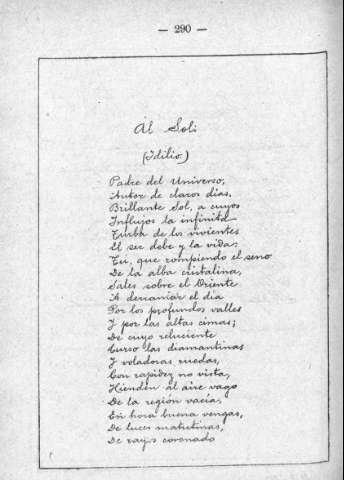 — 290 —
Al Sol:
(Idilio)
Padre del Universo,
Autor de claros dias,
Brillante Sol, a cuyos
Influjos la infinita
Turba de los vivientes
El ser debe y la vida;
Tu, que rompiendo el seno
De la alba cristalina,
Sales sobre el Oriente
A derramar el dia
Por los profundos valles
Y por las altas cimas;
De cuyo reluciente
Curso las diamantinas
Y voladoras ruedas,
Con rapidez no vista,
Hienden al aire vago
De la región vacía,
En hora buena vengas,
De luces matutinas,
De rayos coronado